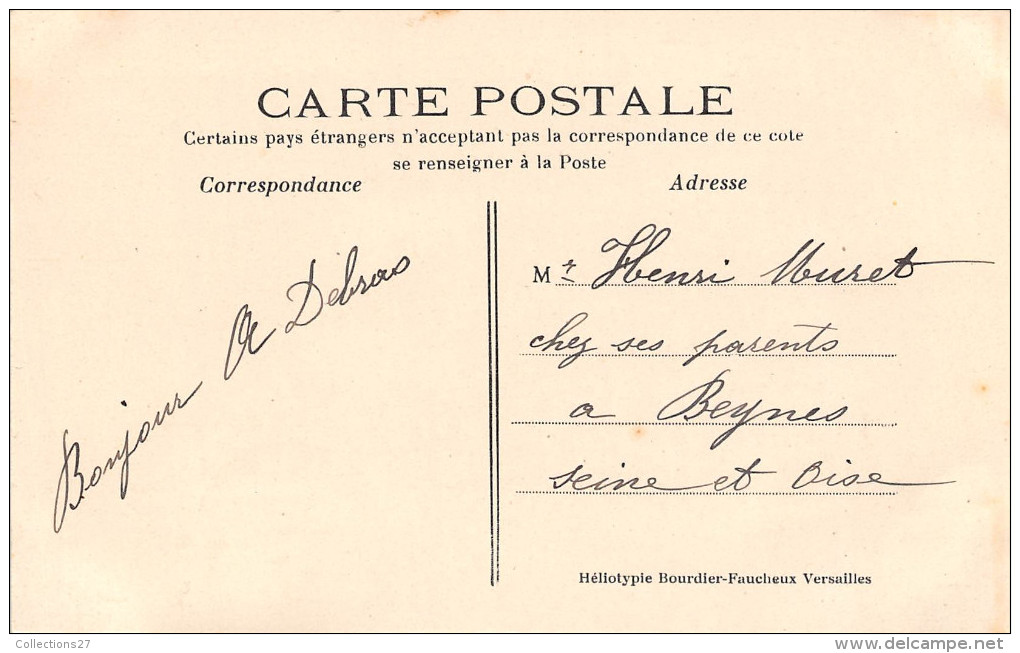 CARTE POSTALE
Certains pays étrangers n'acceptant pas la correspondance de ce cote
se renseigner à la Poste
Correspondance
Adresse
Bonjour A Debras
Mr Henri Muret
chez ses parents
a Beynes
Seine et Oise
Héliotypie Bourdier-Faucheux Versailles
Collections27
www.delcampe.net